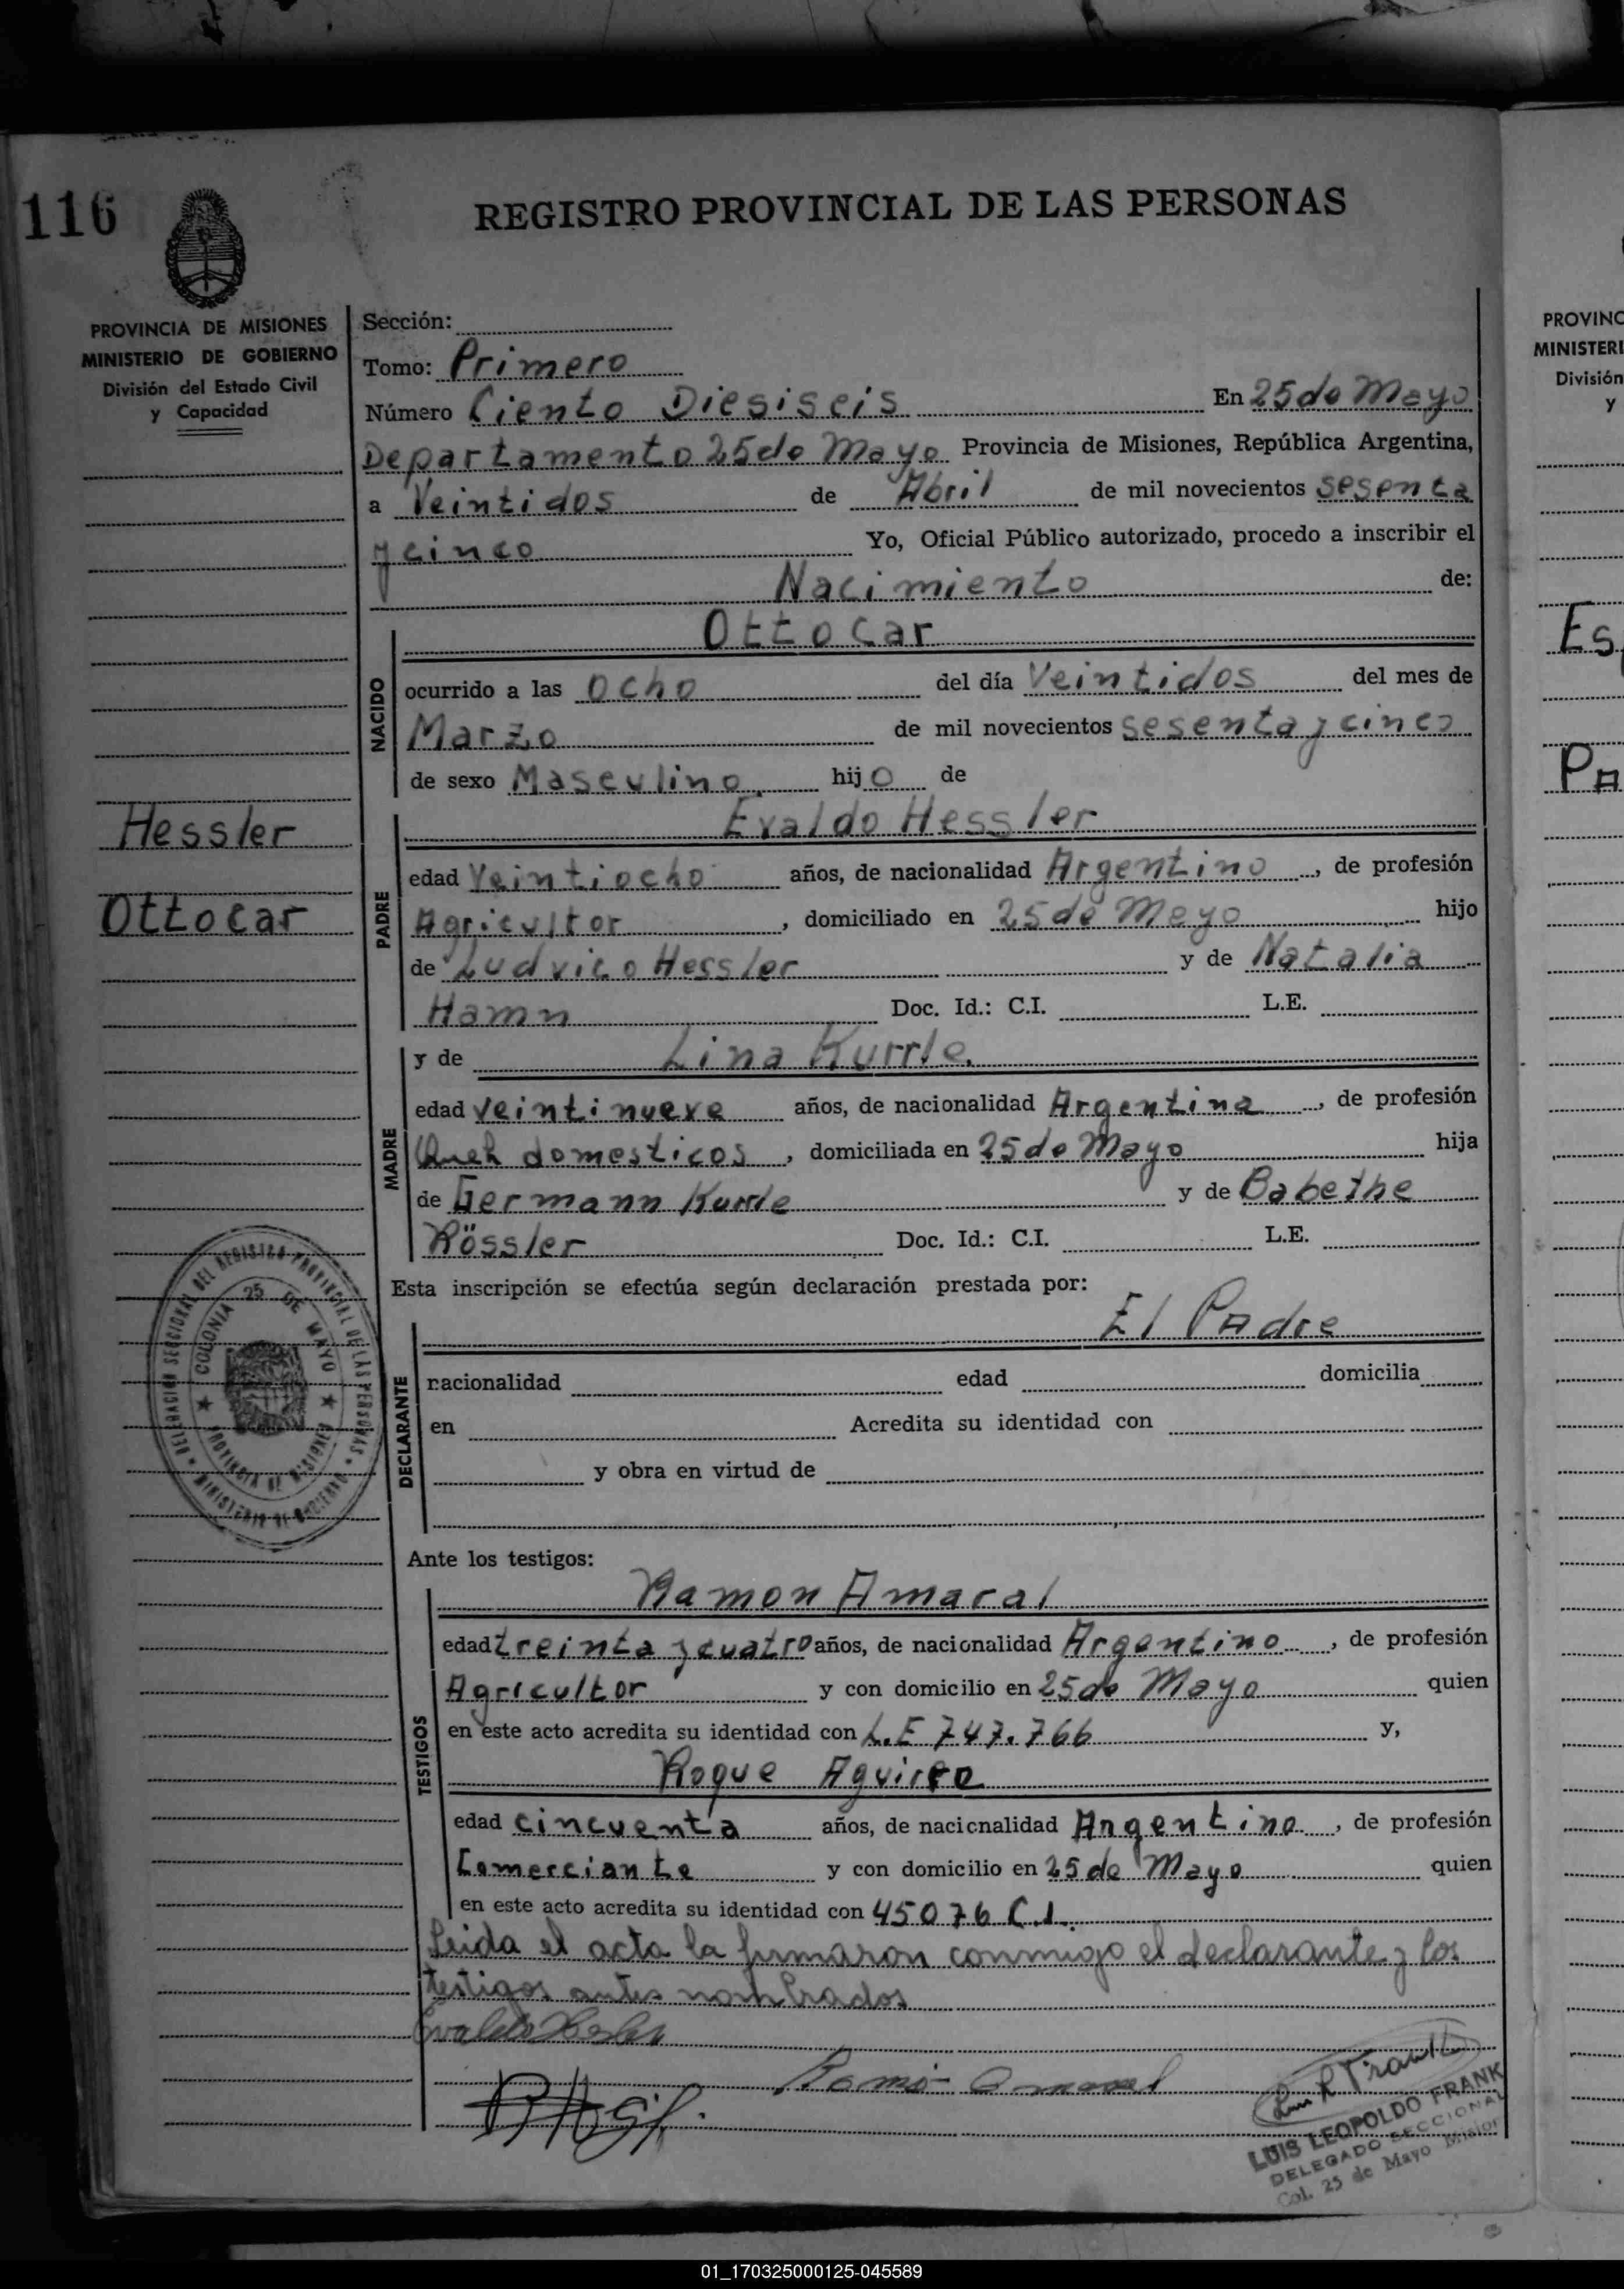 116
REGISTRO PROVINCIAL DE LAS PERSONAS
PROVINCIA DE MISIONES
MINISTERIO DE GOBIERNO
División del Estado Civil
y Capacidad
Sección:
Tomo: Primero
Número Ciento Diesiseis En 25 de Mayo
Departamento 25 de Mayo Provincia de Misiones, República Argentina,
a Veintidos de Abril de mil novecientos sesenta
y cinco Yo, Oficial Público autorizado, procedo a inscribir el
Nacimiento de:
NACIDO
Ottocar
ocurrido a las Ocho del día Veintidos del mes de
Marzo de mil novecientos sesenta y cinco
de sexo Masculino hijo de
Hessler
Ottocar
PADRE
Evaldo Hessler
edad Veintiocho años, de nacionalidad Argentino, de profesión
Agricultor, domiciliado en 25 de Mayo hijo
de Ludvico Hessler y de Natalia
Hamn Doc. Id.: C.I. L.E.
MADRE
y de Lina Kurrle
edad veintinueve años, de nacionalidad Argentina, de profesión
Queh domesticos, domiciliada en 25 de Mayo hija
de Germann Kurrle y de Babethe
Rössler Doc. Id.: C.I. L.E.
Esta inscripción se efectúa según declaración prestada por:
DECLARANTE
El Padre
nacionalidad edad domicilia
en Acredita su identidad con
y obra en virtud de
DELEGACION SECCIONAL DEL REGISTRO PROVINCIAL DE LAS PERSONAS
MINISTERIO DE GOBIERNO
COLONIA 25 DE MAYO
PROVINCIA DE MISIONES
Ante los testigos:
TESTIGOS
Ramon Amaral
edad treinta y cuatro años, de nacionalidad Argentino, de profesión
Agricultor y con domicilio en 25 de Mayo quien
en este acto acredita su identidad con L.E 747.766 y,
Roque Aguirre
edad cincuenta años, de nacionalidad Argentino, de profesión
Comerciante y con domicilio en 25 de Mayo quien
en este acto acredita su identidad con 45076 C.I.
Leida el acta la firmaron conmigo el declarante y los
testigos antes nombrados
Evaldo Hessler
Ramon Amaral
Luis L Frank
LUIS LEOPOLDO FRANK
DELEGADO SECCIONAL
Col. 25 de Mayo Misiones
PROVINC
MINISTERI
División
y
Es
Pa
01_170325000125-045589